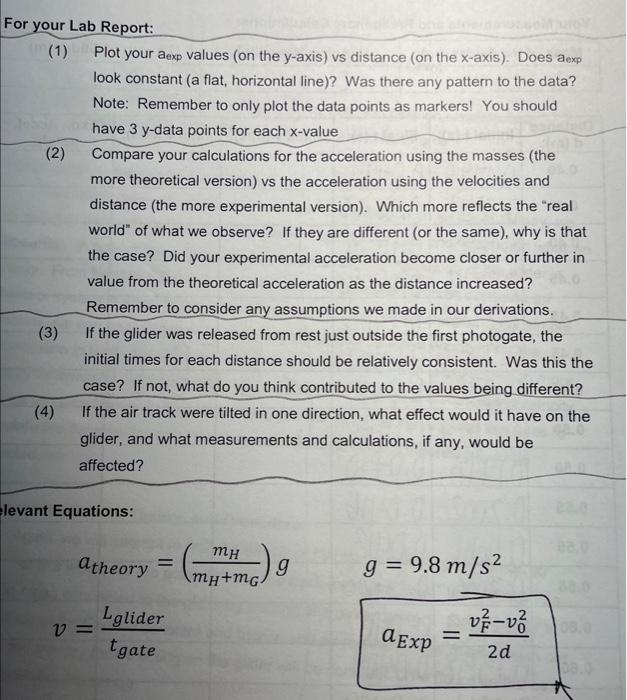 For your Lab Report:
(1) Plot your aexp values (on the y-axis) vs distance (on the x-axis). Does aexp
look constant (a flat, horizontal line)? Was there any pattern to the data?
Note: Remember to only plot the data points as markers! You should
have 3 y-data points for each x-value
(2) Compare your calculations for the acceleration using the masses (the
more theoretical version) vs the acceleration using the velocities and
distance (the more experimental version). Which more reflects the "real
world" of what we observe? If they are different (or the same), why is that
the case? Did your experimental acceleration become closer or further in
value from the theoretical acceleration as the distance increased?
Remember to consider any assumptions we made in our derivations.
(3) If the glider was released from rest just outside the first photogate, the
initial times for each distance should be relatively consistent. Was this the
case? If not, what do you think contributed to the values being different?
(4) If the air track were tilted in one direction, what effect would it have on the
glider, and what measurements and calculations, if any, would be
affected?
elevant Equations:
a_theory = (m_H / (m_H+m_G)) g    g = 9.8 m/s²
v = L_glider / t_gate    a_Exp = (v_F² − v_0²) / 2d